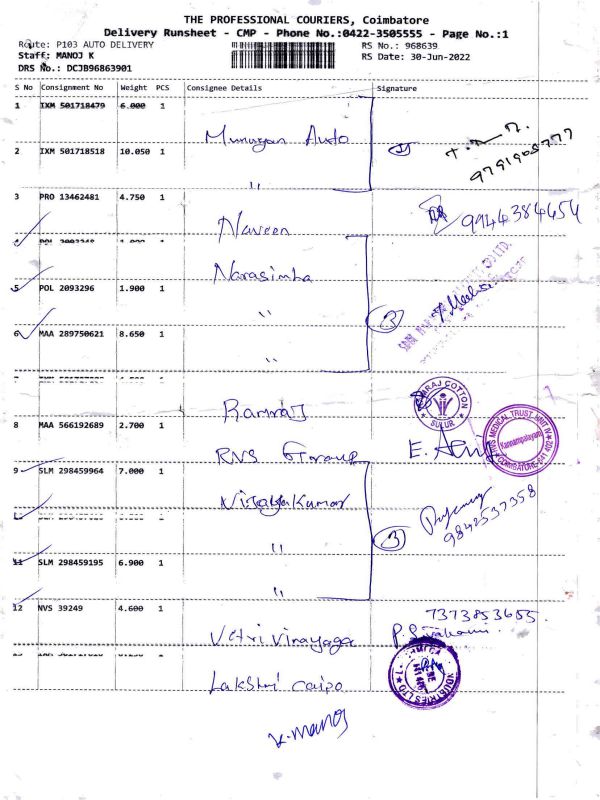 THE PROFESSIONAL COURIERS, Coimbatore
Delivery Runsheet - CMP - Phone No.:0422-3505555 - Page No.:1
Route: P103 AUTO DELIVERY RS No.: 968639
Staff: MANOJ K RS Date: 30-Jun-2022
DRS No.: DCJB96863901
S No Consignment No Weight PCS Consignee Details Signature
1 IXM 501718479 6.000 1
Murugan Auto
2 IXM 501718518 10.050 1
"
3 PRO 13462481 4.750 1
Naveen 9944384454
4
Narasimha
5 POL 2093296 1.900 1
" 3
6 MAA 289750621 8.650 1
"
Ramraj
RAMRAJ COTTON SULUR
8 MAA 566192689 2.700 1
RVS Group
RVS MEDICAL TRUST, UNIT IV Kannampalayam COIMBATORE-641 402
9 SLM 298459964 7.000 1
VijayaKumar 9842537358
" 3
11 SLM 298459195 6.900 1
"
12 NVS 39249 4.600 1
7373853655
Vetri Vinayaga
Lakshmi
K. Manoj